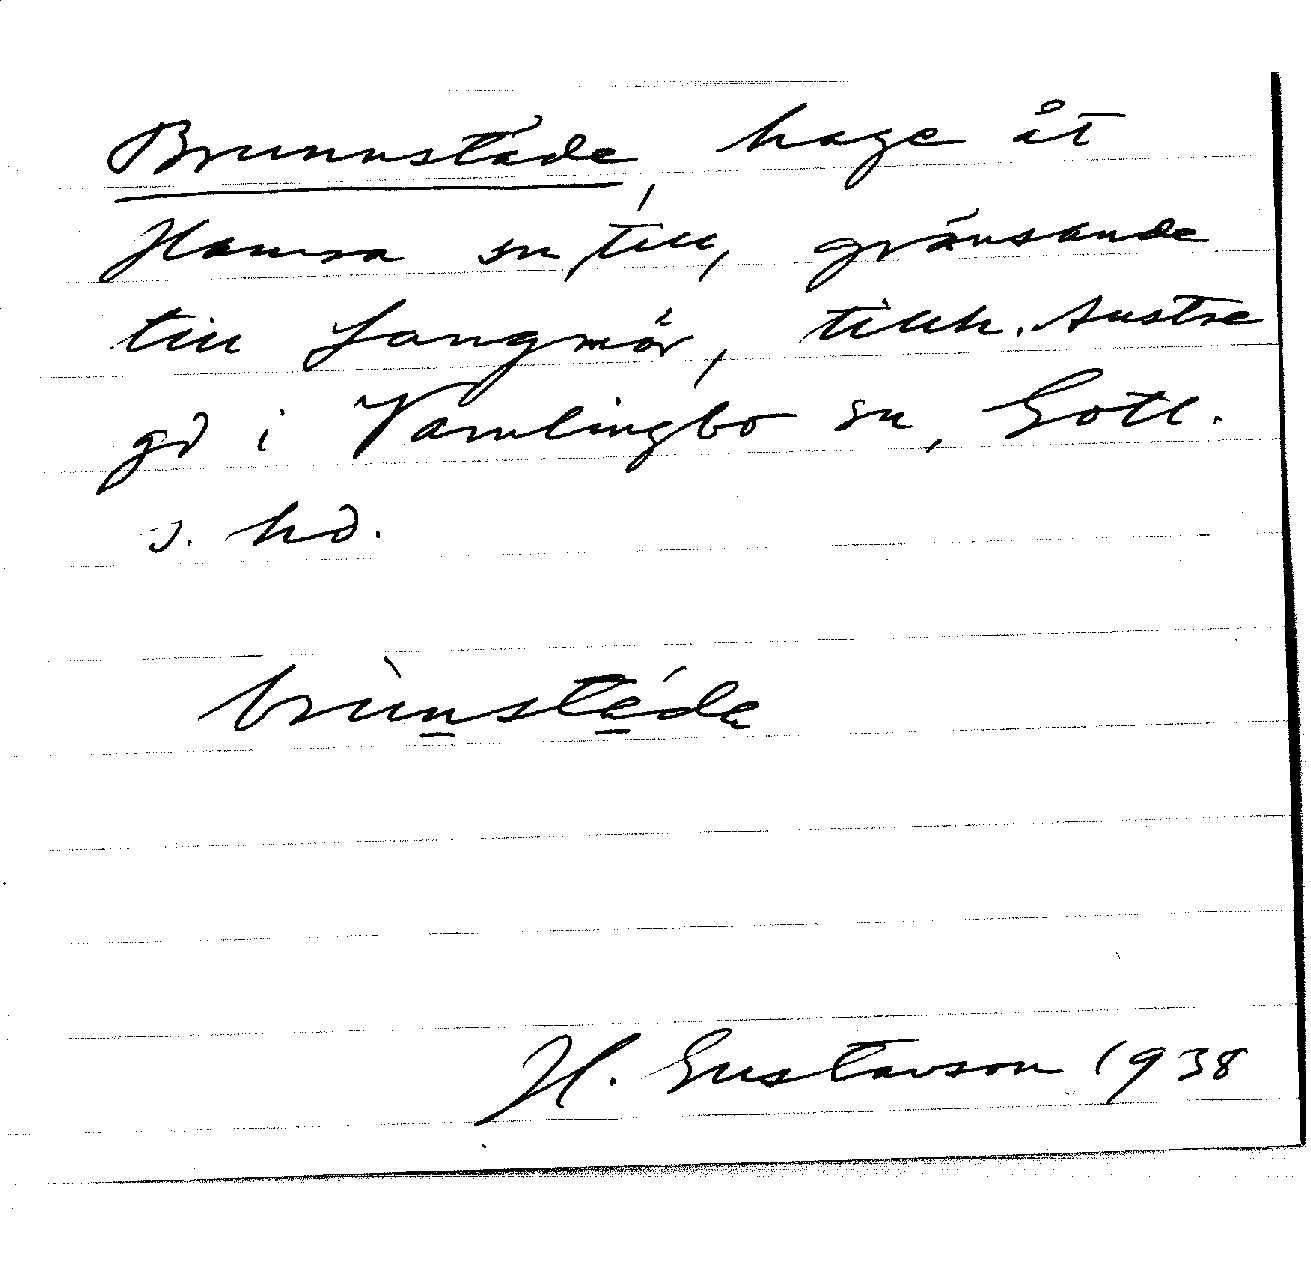 Brunnstáde, hage åt
Hamra sn till, gränsande
till Langmör, tillh. Austre
gd i Vamlingbo sn, Gotl.
s. hd.
brùnstéde
H. Gustavson 1938